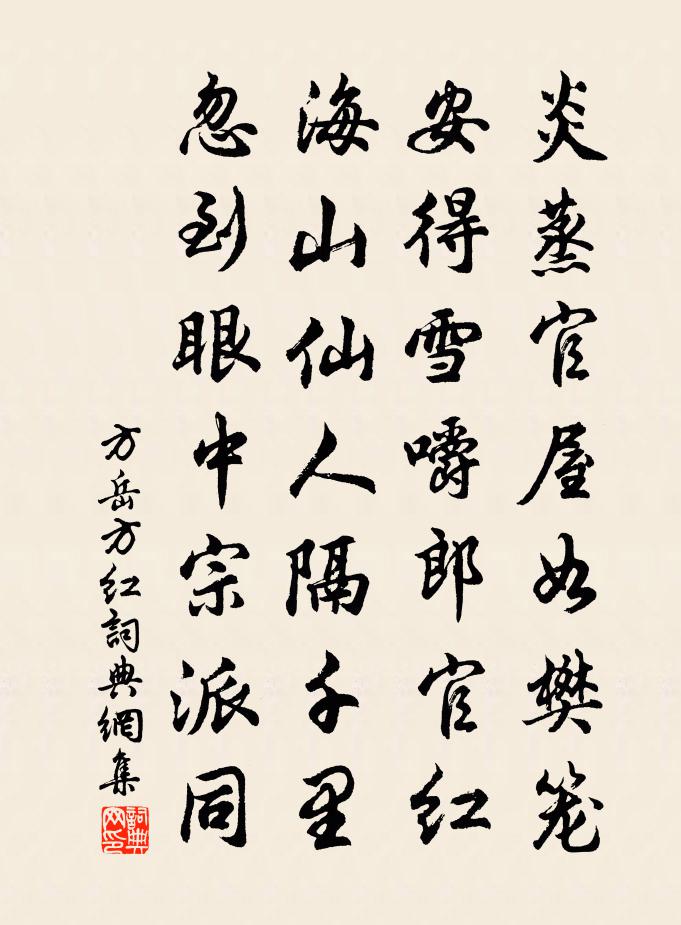 炎蒸官屋如樊笼
安得雪嚼郎官红
海山仙人隔千里
忽到眼中宗派同
方岳方红詞典網集
詞典網印